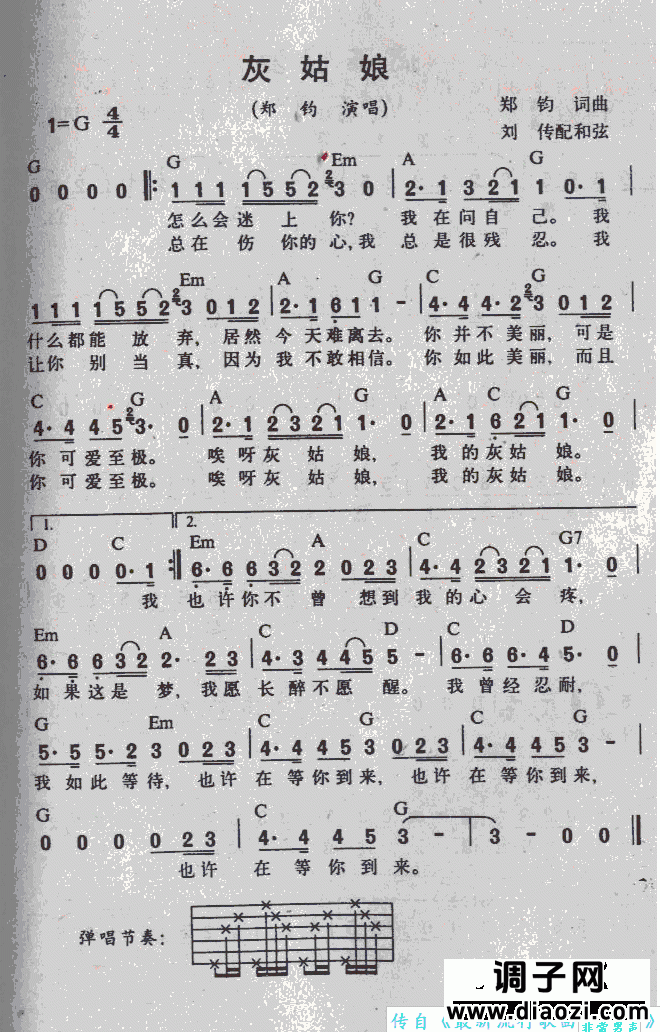 灰姑娘
(郑钧 演唱)
郑钧 词曲
1=G 4/4
刘传配和弦
G G Em A G
0 0 0 0 ‖: 1 1 1 1 5 5 2 3 0 | 2· 1 3 2 1 1 0· 1 |
怎么会迷上你? 我在问自己。我
总在伤你的心,我总是很残忍。我
Em A G C G
1 1 1 1 5 5 2 3 0 1 2 | 2· 1 6 1 1 - | 4· 4 4· 2 3 0 1 2 |
什么都能放弃,居然今天难离去。你并不美丽,可是
让你别当真,因为我不敢相信。你如此美丽,而且
C G A G A C G
4· 4 4 5 3· 0 | 2· 1 2 3 2 1 1· 0 | 2· 1 6 2 1 1· 0 |
你可爱至极。唉呀灰姑娘,我的灰姑娘。
你可爱至极。唉呀灰姑娘,我的灰姑娘。
1. 2.
D C Em A C G7
0 0 0 0· 1 :‖ 6· 6 6 3 2 2 0 2 3 | 4· 4 2 3 2 1 1· 0 |
我也许你不曾想到我的心会疼,
Em A C D C D
6· 6 6 3 2 2· 2 3 | 4· 3 4 4 5 5 - | 6· 6 6· 4 5· 0 |
如果这是梦,我愿长醉不愿醒。我曾经忍耐,
G Em C G C G
5· 5 5· 2 3 0 2 3 | 4· 4 4 5 3 0 2 3 | 4· 4 4 5 3 - |
我如此等待,也许在等你到来,也许在等你到来,
G C G
0 0 0 0 2 3 | 4· 4 4 5 3 - | 3 - 0 0 ‖
也许在等你到来。
弹唱节奏:
调子网
www.diaozi.com
传自《最新流行歌曲
非常男声